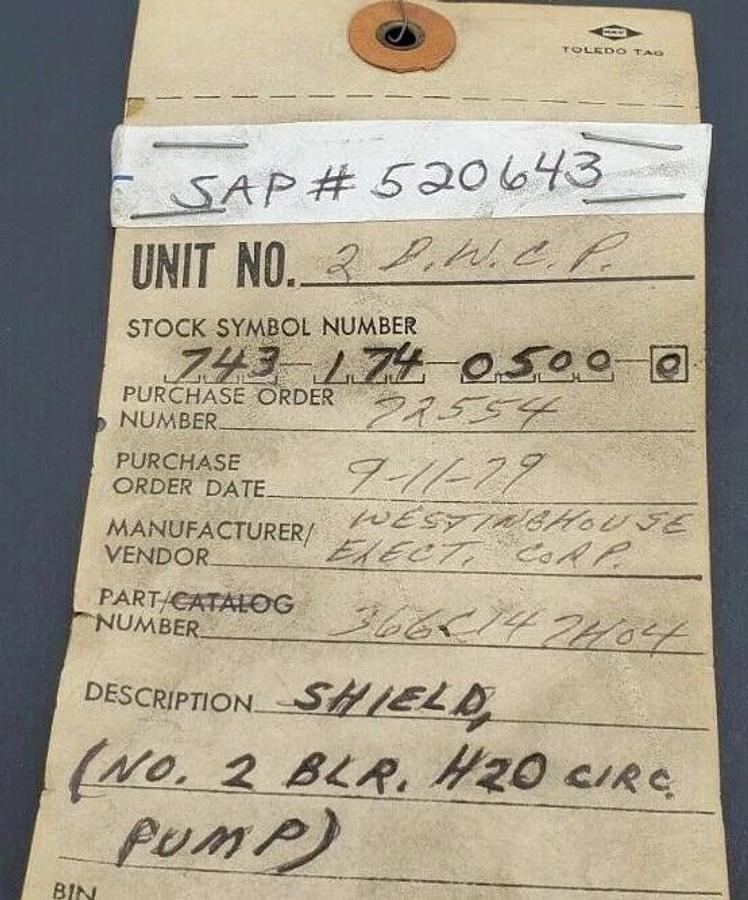 TOLEDO TAG
SAP # 520643
UNIT NO. 2 B.W.C.P.
STOCK SYMBOL NUMBER
743-174-0500-0
PURCHASE ORDER
NUMBER 72554
PURCHASE
ORDER DATE 9-11-79
MANUFACTURER/ WESTINGHOUSE
VENDOR ELECT. CORP.
PART/CATALOG
NUMBER 366C147H04
DESCRIPTION SHIELD,
(NO. 2 BLR. H20 CIRC.
PUMP)
BIN